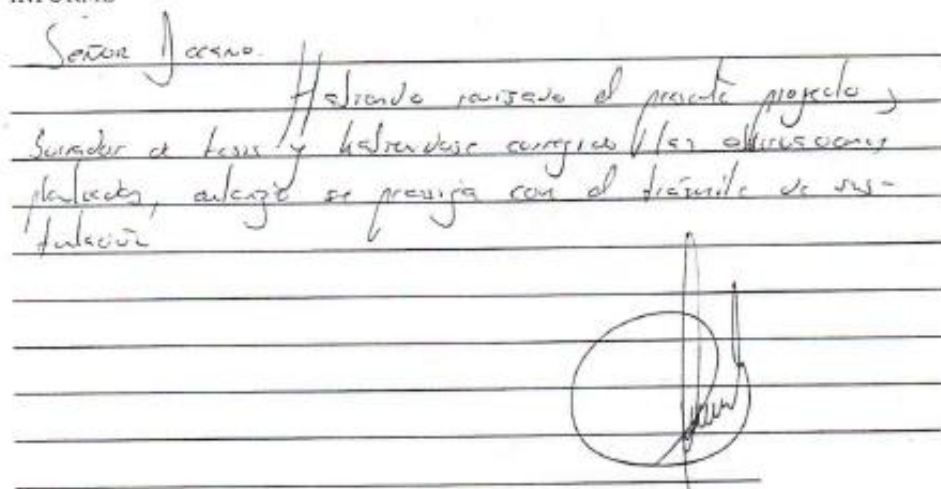 INFORME
Señor Decano.
Habiendo revisado el presente proyecto y
borrador de tesis y habiendose corregido las observaciones
planteadas, autorizo se prosiga con el trámite de sus-
tentación